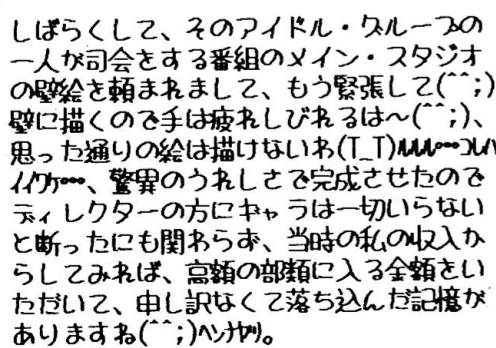 しばらくして、そのアイドル・グループの
一人が司会をする番組のメイン・スタジオ
の壁絵を頼まれまして、もう緊張して(^^;)
壁に描くので手は疲れしびれるは〜(^^;)、
思った通りの絵は描けないわ(T_T)
、驚異のうれしさで完成させたので
ディレクターの方にキャラは一切いらない
と断ったにも関わらず、当時の私の収入か
らしてみれば、高額の部類に入る金額をい
ただいて、申し訳なくて落ち込んだ記憶が
ありますね(^^;)ヘンナヤツ。